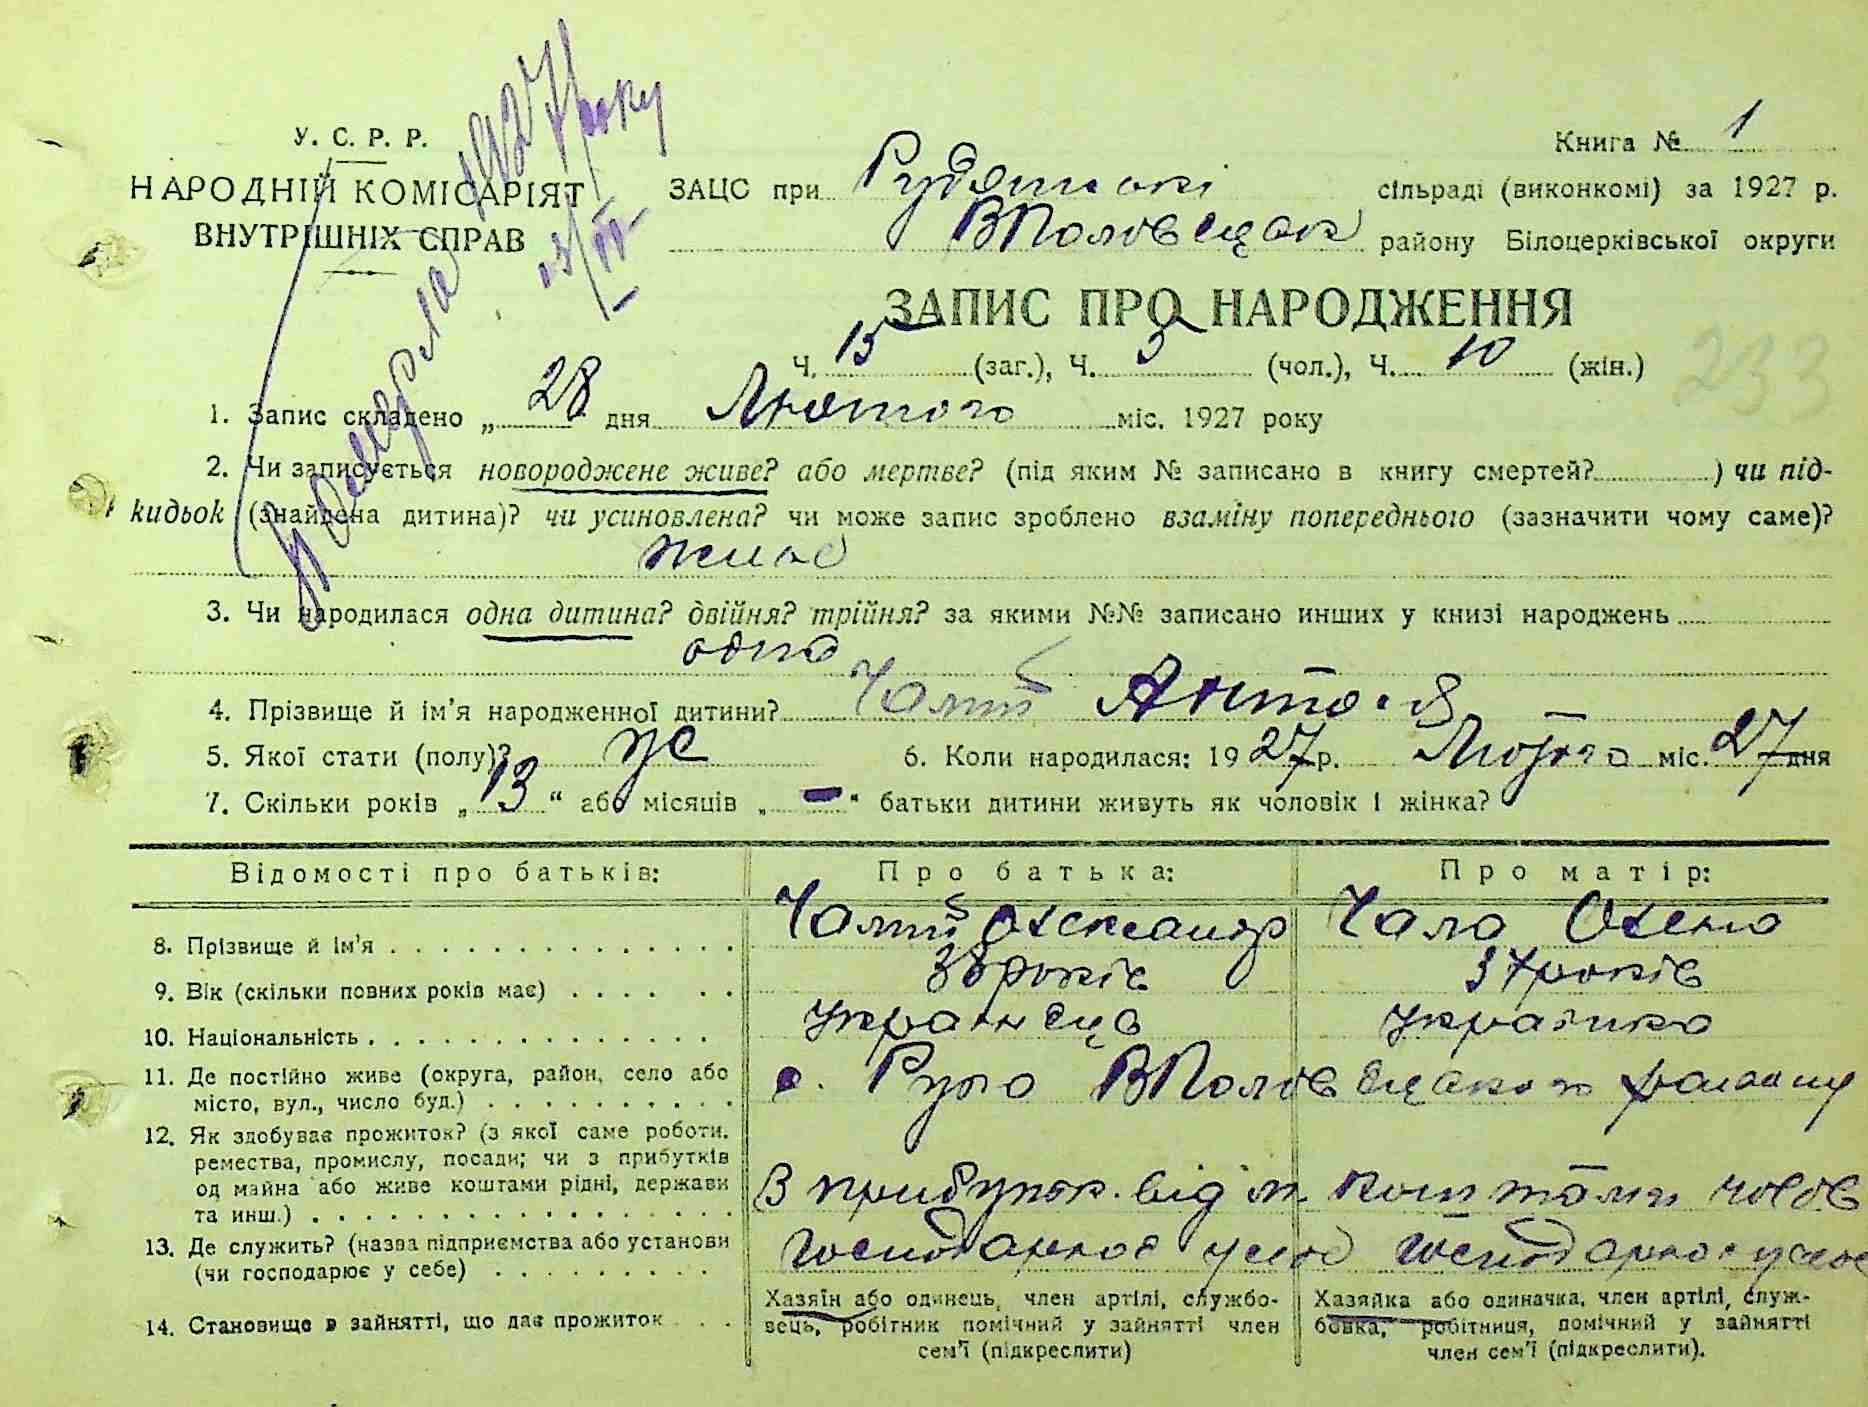 У. С. Р. Р.
НАРОДНІЙ КОМІСАРІЯТ
ВНУТРІШНІХ СПРАВ
Померла 1927 року
Книга № 1
ЗАЦС при Рудянські сільраді (виконкомі) за 1927 р.
ВПоловецьк району Білоцерківської округи
ЗАПИС ПРО НАРОДЖЕННЯ
Ч. 15 (заг.), Ч. 5 (чол.), Ч. 10 (жін.)
233
1. Запис складено „ 28 дня Лютого міс. 1927 року
2. Чи записується новороджене живе? або мертве? (під яким № записано в книгу смертей? ) чи під-
кидьок (знайдена дитина)? чи усиновлена? чи може запис зроблено взаміну попереднього (зазначити чому саме)?
живе
3. Чи народилася одна дитина? двійня? трійня? за якими №№ записано инших у книзі народжень
одна
4. Прізвище й ім'я народженної дитини? Чалий
5. Якої стати (полу)? ж 6. Коли народилася: 1927 р. Лютого міс. 27 дня
7. Скільки років „ 13 “ або місяців „ — “ батьки дитини живуть як чоловік і жінка?
Відомості про батьків: Про батька: Про матір:
8. Прізвище й ім'я Чалий Олександр Чала Олена
9. Вік (скільки повних років має) 38 років 37 років
10. Національність українець українка
11. Де постійно живе (округа, район, село або
місто, вул., число буд.) с. Руда ВПоловецького району
12. Як здобуває прожиток? (з якої саме роботи,
ремества, промислу, посади; чи з прибутків
од майна або живе коштами рідні, держави
та инш.) З прибутк. від коштами чолов
13. Де служить? (назва підприємства або установи
(чи господарює у себе) Господарює у себе Господарює у себе
14. Становище в зайнятті, що дає прожиток
Хазяїн або одинець, член артілі, службо-
вець, робітник помічний у зайнятті член
сем'ї (підкреслити)
Хазяйка або одиначка, член артілі, служ-
бовка, робітниця, помічний у зайнятті
член сем'ї (підкреслити).